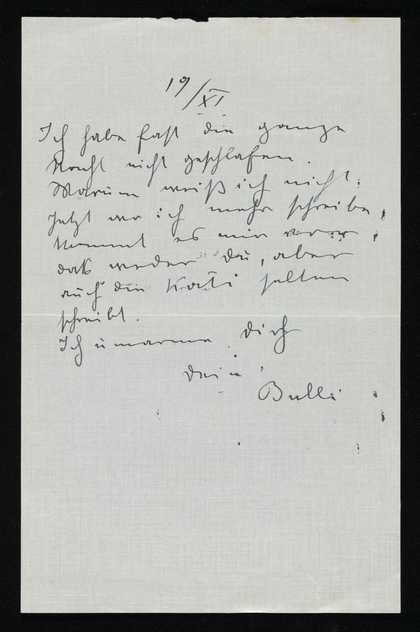 19/XI
Ich habe fast die ganze
Nacht nicht geschlafen.
Warum weiß ich nicht.
Jetzt wo ich mehr schreibe,
kommt es mir vor,
daß weder Du, aber
auch die Kati selten
schreibt.
Ich umarme Dich
Dein
Bulli